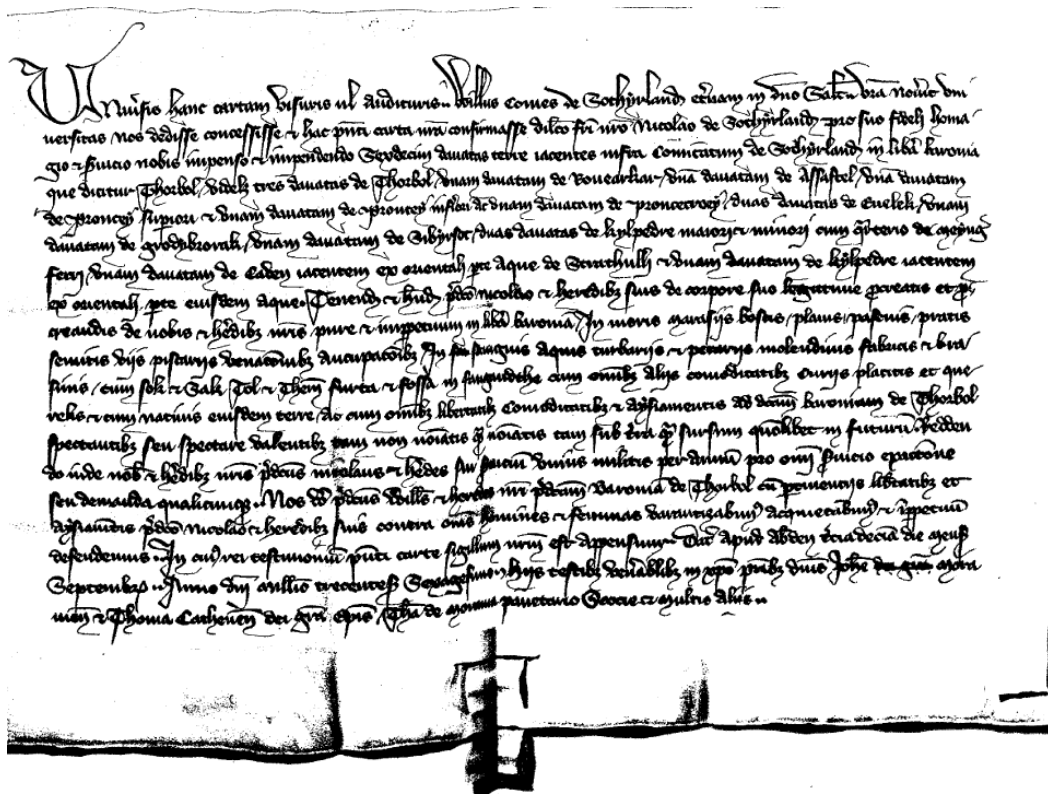 Uniuersis hanc cartam visuris uel audituris Willms Comes de Sothyrland eternam in dno Salt vra nouit vni
uersitas nos dedisse concessisse & hac pnti carta nra confirmasse dilco fri nro Nicolao de Sothyrland pro suo fideli homa
gio & seruicio nobis impenso & impendendo Sexdecim dauatas terre iacentes infra Comitatum de Sothyrland in liba baronia
que dicitur Thorbol videlz tres dauatas de Thorbol vnam dauatam de Rouearkar vna dauatam de Assastel vna dauatam
de Proncey supiori & vnam dauatam de Proncey inferi ac vnam dauatam de Proncetroey duas dauatas de Euelek vnam
dauatam de Grodybrorak vnam dauatam de Sibyrsor duas dauatas de kylpedre maiori et minori cum qrterio de Meyng
fecri vnam dauatam de Caden iacentem ex orientali pte aque de Strathulli & vnam dauatam de kylpedre iacentem
ex orientali pte eiusdem aque Tenend & hnd pdco nicolao & heredibz suis de corpore suo legitime pcreatis et p
creandis de nobis & hedibz nris pure & imppetuum in liba baronia In moris marasiis boscis planis pascuis pratis
semitis viis piscariis venacoibz aucupacoibz In stangnis aquis turbariis & petariis molendinis fabricis & bra
sinis cum sok & Sak Tol & Them furca & fossa infangandthefe cum omibz aliis comoditatibz curiis placitis et que
relis & cum natiuis eiusdem terre ac cum omibz libertatibz Comoditatibz & aysiamentis ad dctam baroniam de Thorbol
spectantibz seu spectare valentibz tam non noiatis q noiatis tam sub tra q sursum quolibet in futuru Redden
do inde nob & hedibz nris pdctus nicolaus & hedes sui seruiciu vnius militis per annu pro omi seruicio exaccone
seu demanda qualicumqe Nos vo pdctus Willms & heredes nri pdctam Baronia de Thorbol cu ptinenciis libtatibz et
aysiamentis pdco Nicolao & heredibz suis contra oms homines & feminas varantizabim acquietabim & imppetuu
defendemus In cui rei testimoniu pnti carte sigillum nrm est appensum Dat apud Abden tcia decia die mens
Septembr Anno dni millio trecentes Sexagesimo Hiis testibz venablibz in xpo pribz dnis Johe mora
uien & Thoma Cathenen dei gra epis Tho de morauia panetario Scocie & multis aliis